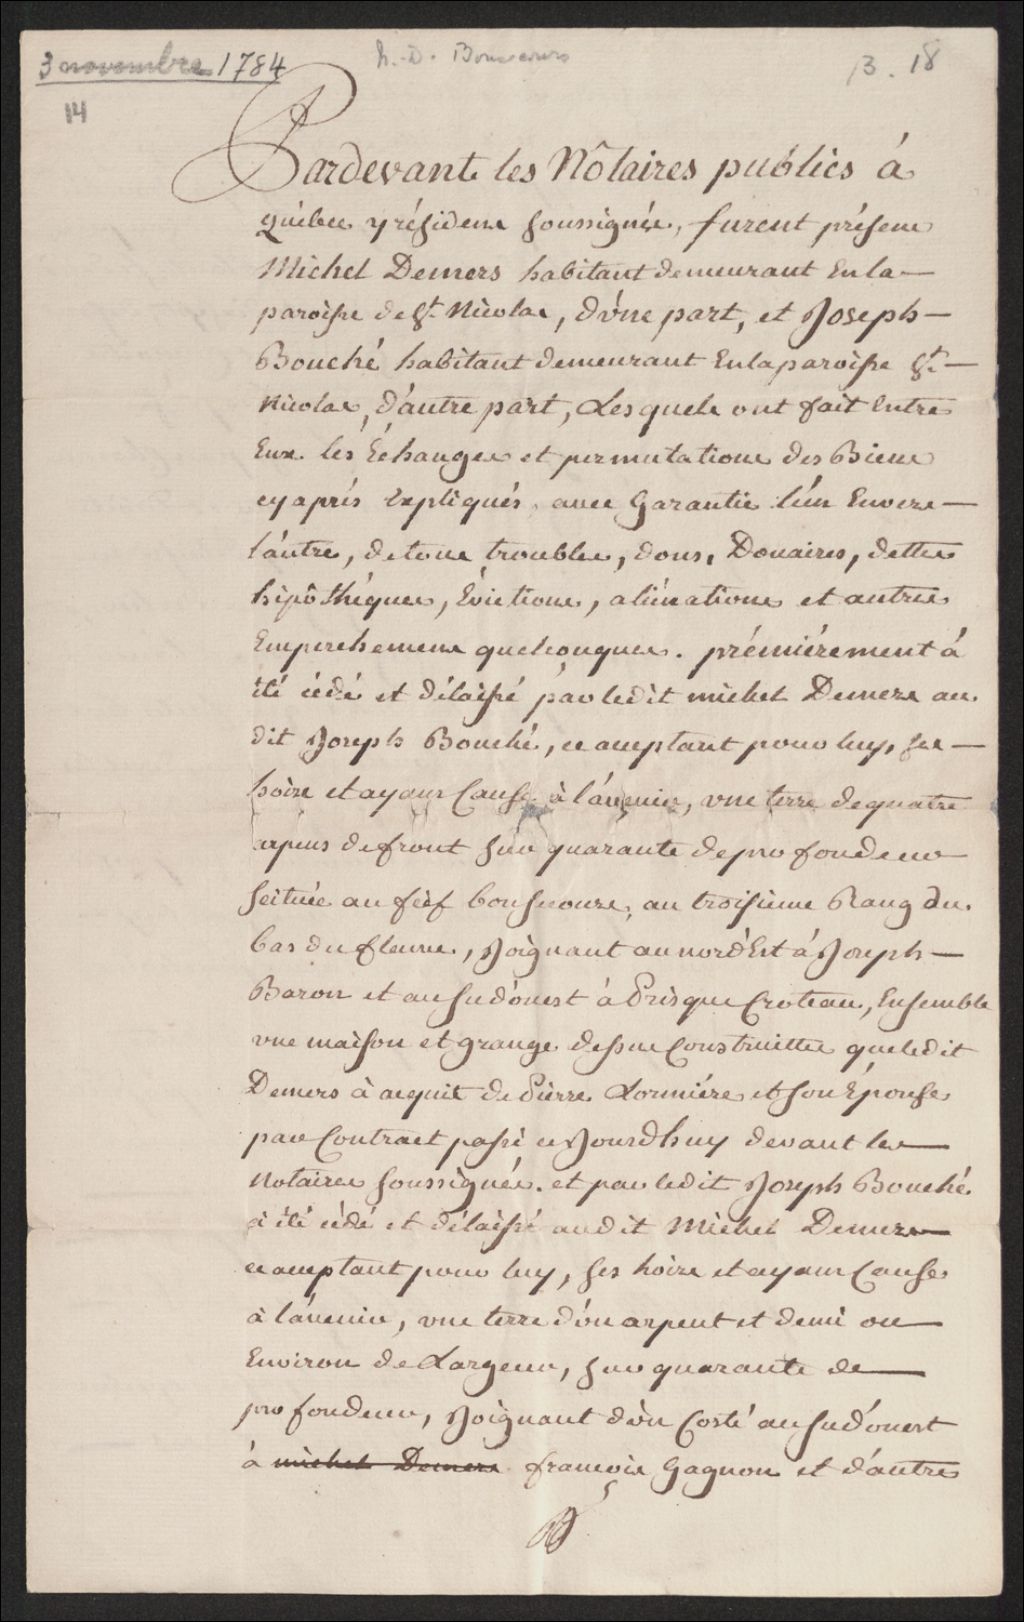 3 novembre 1784
N.-D. Bonsecours
13. 18
14
Pardevant les Nôtaires publics à
québec y résidens soussignés, furent présens
Michel Demers habitant demeurant en la
paroisse de St. Nicolas, d'une part, et Joseph
Bouché habitant demeurant en la paroisse St.
Nicolas, d'autre part, Lesquels ont fait entre
Eux les Echanges et permutations des Biens
cy aprés Expliqués, avec Garantie l'un Envers
l'autre, de tous troubles, dons, Douaires, dettes
hipôthéques, Evictions, aliénations et autres
Empechemens quelconques. prémiérement à
été cédé et délaissé par ledit michel Demers au
dit Joseph Bouché, ce acceptant pour luy, ses
hoirs et ayans Cause à l'avenir, une terre de quatre
arpens de front sur quarante de profondeur
scituée au fief bonsecours, au troisiéme Rang du
bas du fleuve, Joignant au nord Est à Joseph
Baron et au sud'ouest à Prisque Croteau, Ensemble
une maison et grange dessus Construittes que ledit
Demers à acquit de Pierre Lormiére et son Epouse
par Contract passé ce Jourdhuy devant les
Notaires soussignés. et par ledit Joseph Bouché
à été cédé et délaissé audit Michel Demers
ce acceptant pour luy, ses hoirs et ayans Cause
à l'avenir, une terre d'un arpent et demi ou
Environ de Largeur, sur quarante de
profondeur, Joignant d'un Costé au sud'ouest
à michel Demers francois Gagnon et d'autre